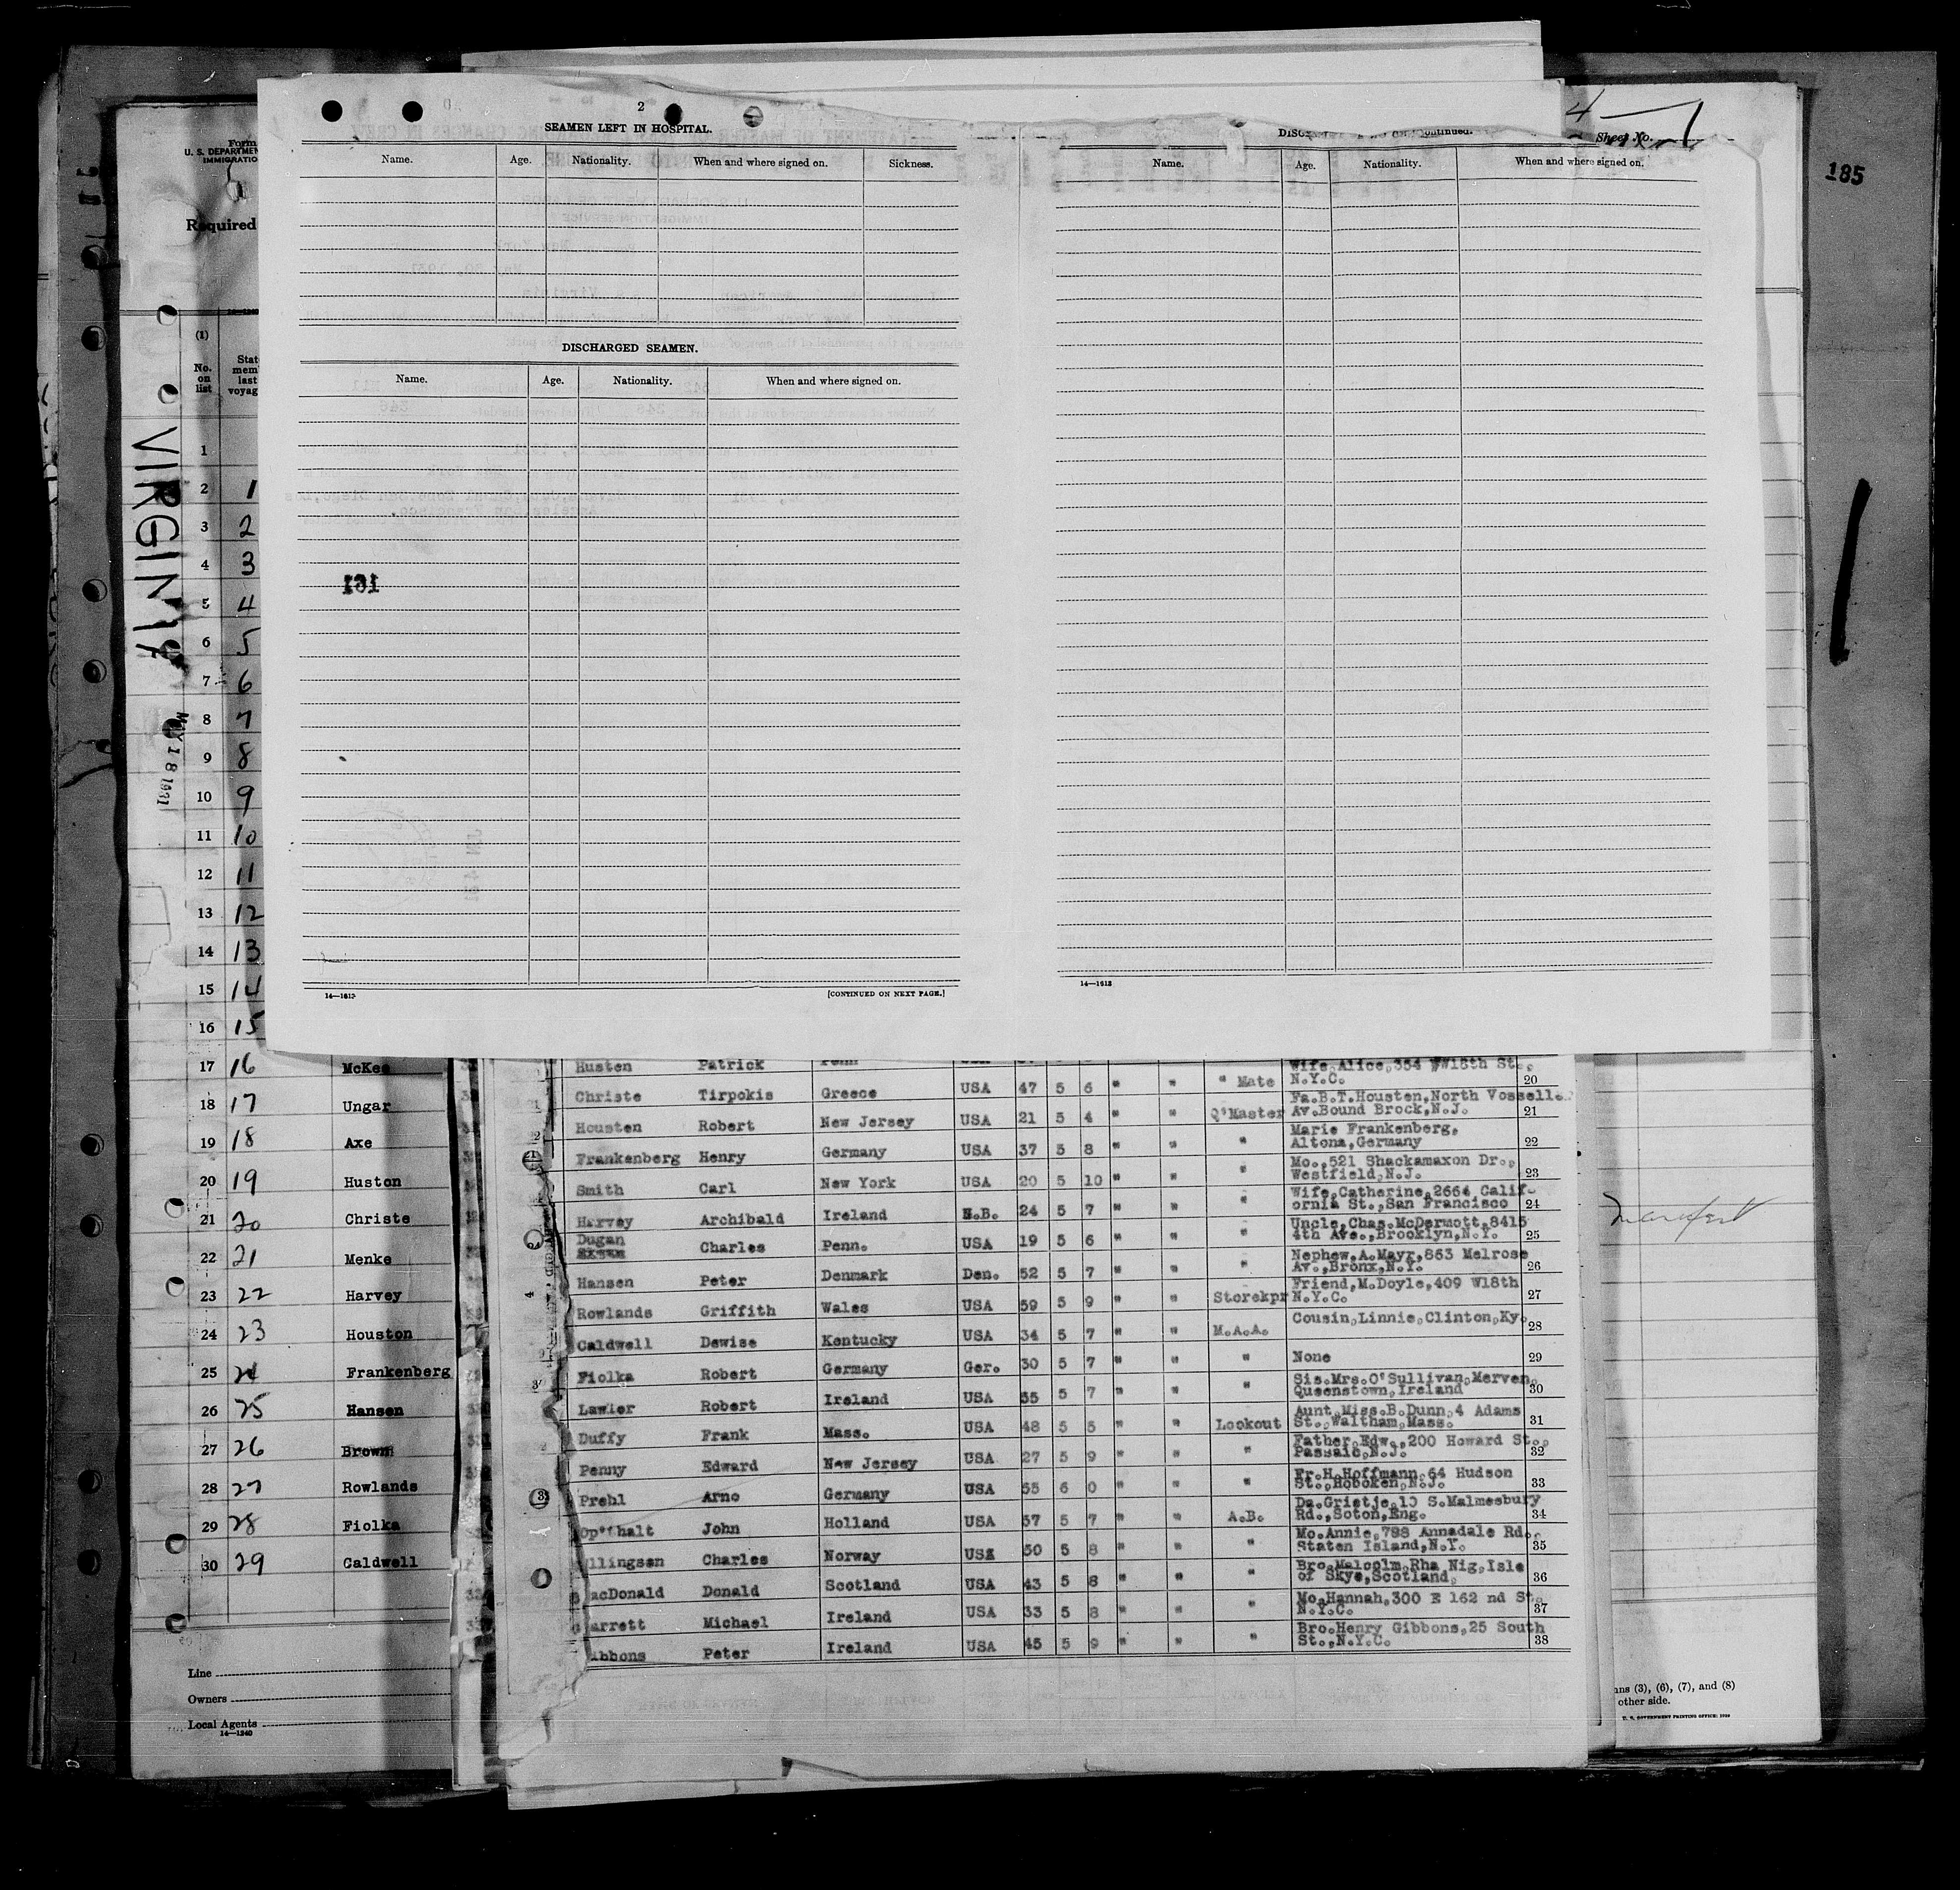 2
SEAMEN LEFT IN HOSPITAL.
Name. Age. Nationality. When and where signed on. Sickness.
DISCHARGED SEAMEN.
Name. Age. Nationality. When and where signed on.
161
14—1613
[CONTINUED ON NEXT PAGE.]
Continued.
Name. Age. Nationality. When and where signed on.
14—1613
Sheet No.
185
Form
U. S. DEPARTMEN
IMMIGRATIO
Required
VIRGINIA
MAY 18 1931
(1)
No. on list
State mem last voyag
1
2 1
3 2
4 3
5 4
6 5
7 6
8 7
9 8
10 9
11 10
12 11
13 12
14 13
15 14
16 15
17 16 McKee
18 17 Ungar
19 18 Axe
20 19 Huston
21 20 Christe
22 21 Menke
23 22 Harvey
24 23 Houston
25 24 Frankenberg
26 25 Hansen
27 26 Brown
28 27 Rowlands
29 28 Fiolka
30 29 Caldwell
Line
Owners
Local Agents
14—1240
Husten Patrick Penn Wife,Alice,354 W18th St.,
N.Y.C. 20
Christe Tirpokis Greece USA 47 5 6 " " " Mate
Fa.B.T.Housten,North Vosseller
Av.Bound Brock,N.J. 21
Housten Robert New Jersey USA 21 5 4 " " Q'Master
Marie Frankenberg,
Altona,Germany 22
Frankenberg Henry Germany USA 37 5 8 " " "
Mo.,521 Shackamaxon Dr.,
Westfield,N.J. 23
Smith Carl New York USA 20 5 10 " " "
Wife,Catherine,2664 Calif-
ornia St.,San Francisco 24
Harvey Archibald Ireland N.B. 24 5 7 " " "
Uncle,Chas.McDermott,8415
4th Ave.,Brooklyn,N.Y. 25
Dugan Charles Penn. USA 19 5 6 " " "
Nephew,A.Mayr,863 Melrose
Av.,Bronx,N.Y. 26
Hansen Peter Denmark Den. 52 5 7 " " "
Friend,M.Doyle,409 W18th
N.Y.C. 27
Rowlands Griffith Wales USA 59 5 9 " " Storekpr
Cousin,Linnie,Clinton,Ky.
28
Caldwell Dewise Kentucky USA 34 5 7 " " M.A.A.
None 29
Fiolka Robert Germany Ger. 30 5 7 " " "
Sis.Mrs.O'Sullivan,Merven,
Queenstown,Ireland 30
Lawler Robert Ireland USA 55 5 7 " " "
Aunt,Miss.B.Dunn,4 Adams
St.,Waltham,Mass. 31
Duffy Frank Mass. USA 48 5 5 " " Lookout
Father,Edw.,200 Howard St.,
Passaic,N.J. 32
Penny Edward New Jersey USA 27 5 9 " " "
Fr.H.Hoffmann,64 Hudson
St.,Hoboken,N.J. 33
Prehl Arno Germany USA 55 6 0 " " "
Da.Grietje,10 S.Malmesbury
Rd.,Soton,Eng. 34
Op'thalt John Holland USA 57 5 7 " " A.B.
Mo.Annie,788 Annadale Rd.,
Staten Island,N.Y. 35
llingsen Charles Norway USA 50 5 8 " " "
Bro.Malcolm,Rha Nig,Isle
of Skye,Scotland, 36
acDonald Donald Scotland USA 43 5 8 " " "
Mo.Hannah,300 E 162 nd St.
N.Y.C. 37
arrett Michael Ireland USA 33 5 8 " " "
Bro.Henry Gibbons,25 South
St.,N.Y.C. 38
ibbons Peter Ireland USA 45 5 9 " " "
ns (3), (6), (7), and (8)
other side.
U. S. GOVERNMENT PRINTING OFFICE: